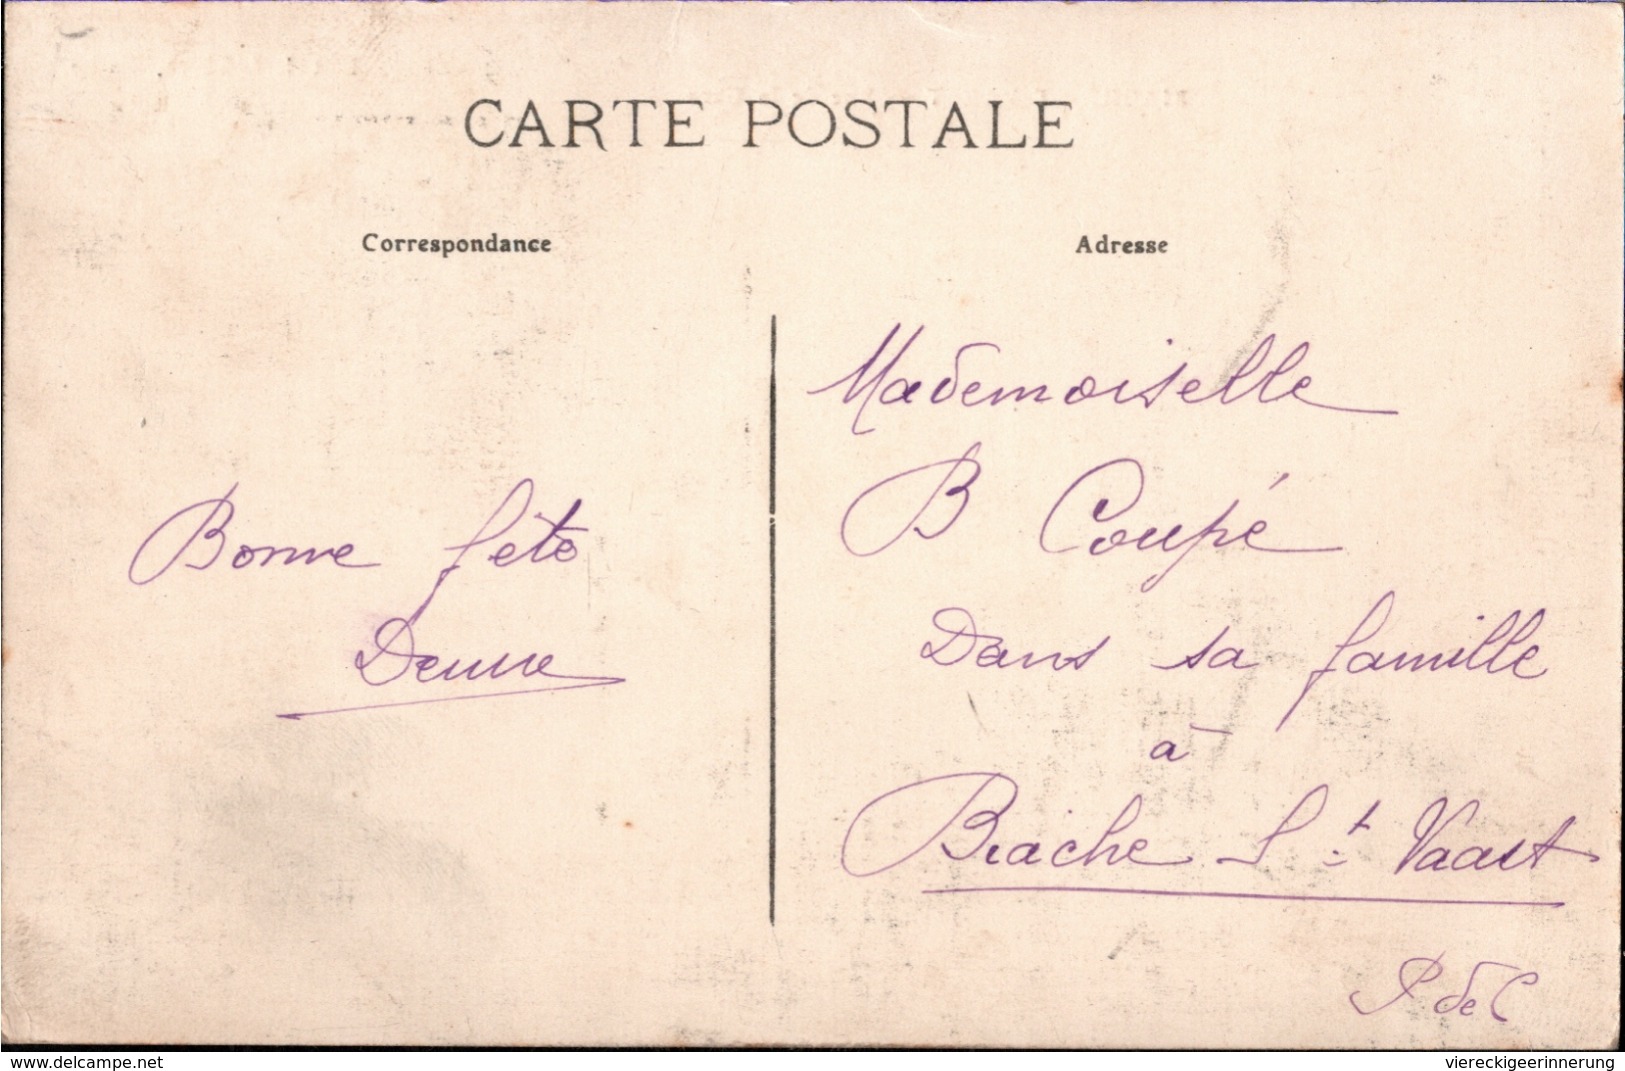 CARTE POSTALE
Correspondance
Bonne fête
Adresse
Mademoiselle
B Coupé
Dans sa famille
à
Biache St Vaast
P de C
www.delcampe.net
viereckigeerinnerung